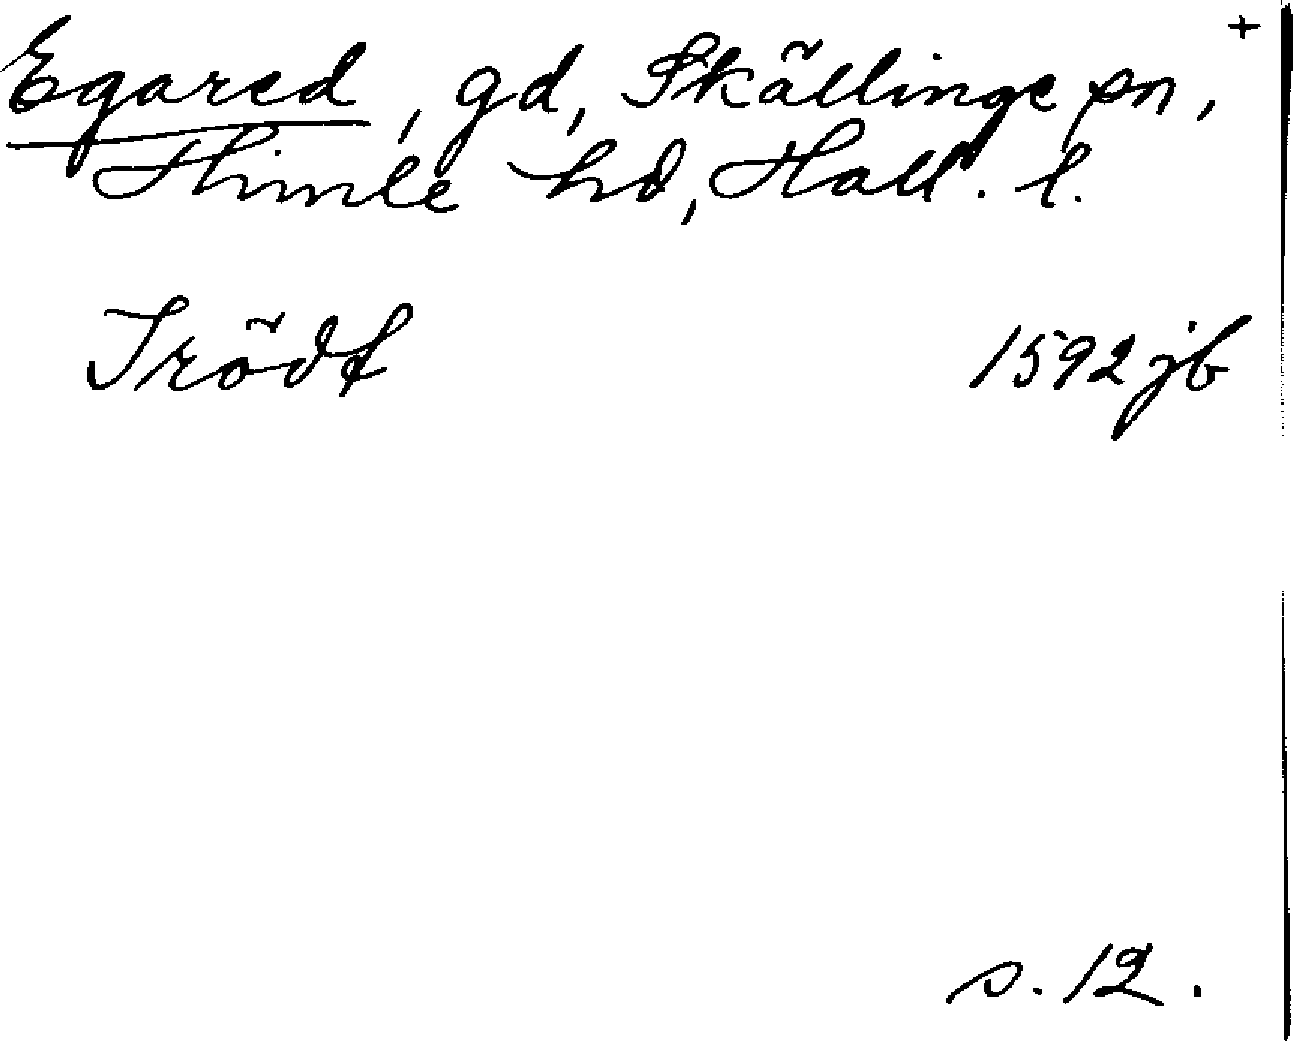 +
Egared, gd, Skällinge sn,
Himle hd, Hall. l.
Trödt 1592 jb
s. 12.